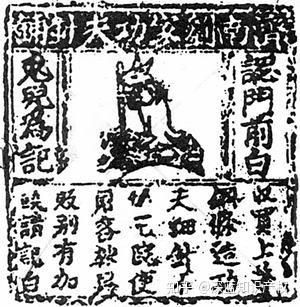 濟南劉家功夫針鋪
認門前白
兔兒為記
收買上等
鋼條造功
夫細針不
宅院使
販別有加
饒請記白
知乎 @深蓝知识产权